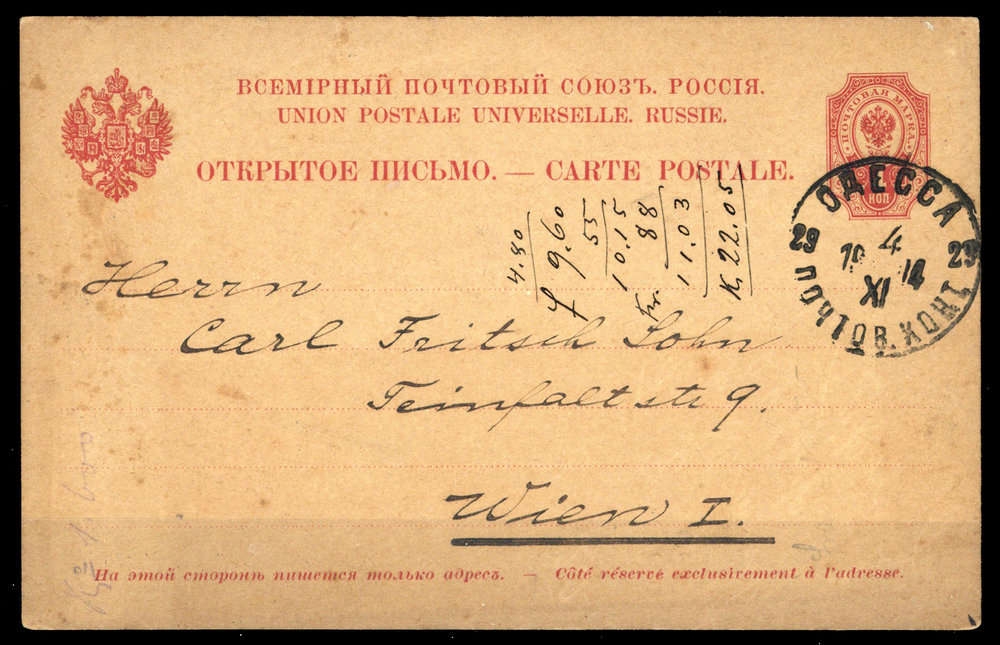 ВСЕМІРНЫЙ ПОЧТОВЫЙ СОЮЗЪ. РОССІЯ.
UNION POSTALE UNIVERSELLE. RUSSIE.
ОТКРЫТОЕ ПИСЬМО. — CARTE POSTALE.
ПОЧТОВАЯ МАРКА
КОП
ОДЕССА
29 4 29
XI
ПОЧТОВ. КОНТ
4.80
9.60
55
10.15
Kr. 88
11.03
K. 22.05
Herrn
Carl Fritsch Sohn
Teinfaltstr 9.
Wien I.
На этой сторонѣ пишется только адресъ. — Côté réservé exclusivement à l'adresse.